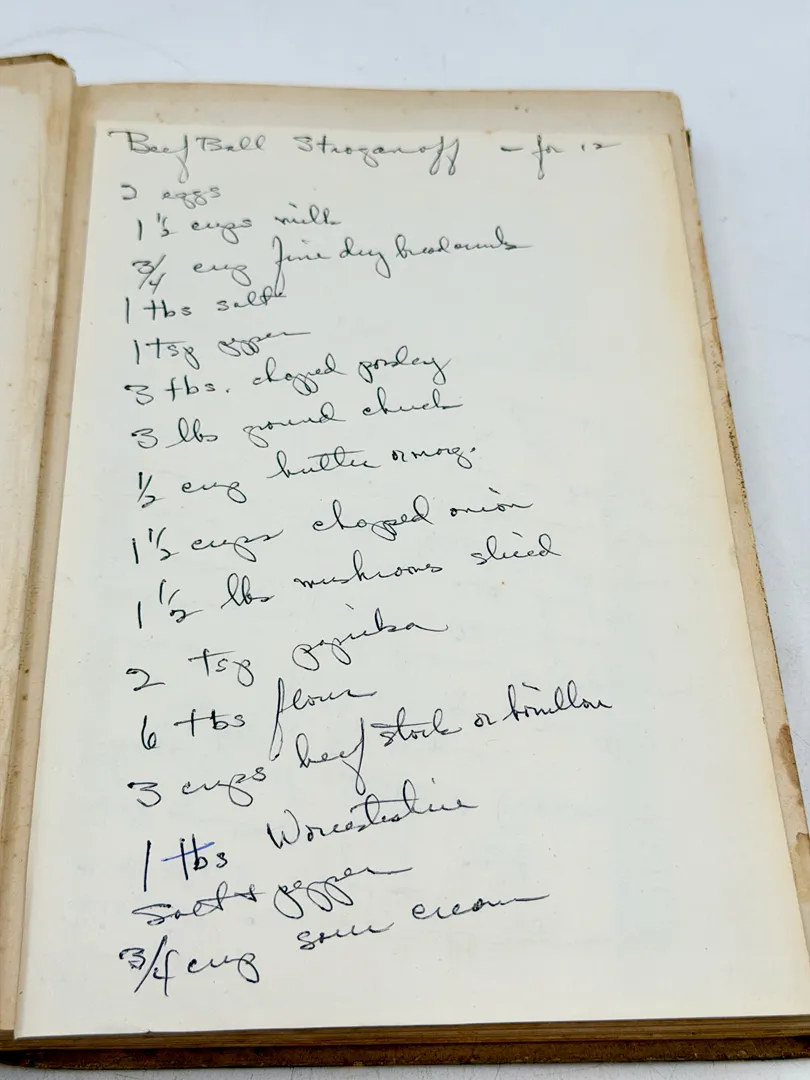 Beef Ball Stroganoff - for 12
2 eggs
1 1/2 cups milk
3/4 cup fine dry breadcrumbs
1 tbs salt
1 tsp pepper
3 tbs. chopped parsley
3 lbs ground chuck
1/2 cup butter or marg.
1 1/2 cups chopped onion
1 1/2 lbs mushrooms sliced
2 tsp paprika
6 tbs flour
3 cups beef stock or bouillon
1 tbs Worcestershire
Salt & pepper
3/4 cup sour cream